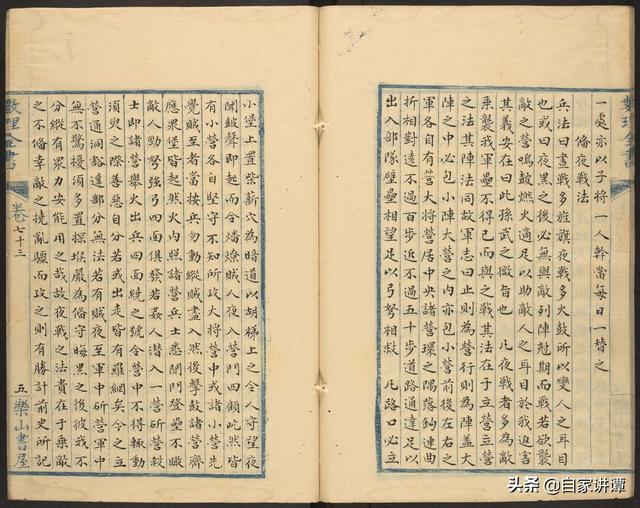 一處亦以子將一人幹當每日一替之
俻夜戰法
兵法曰晝戰多旌旗夜戰多火鼓所以變人之耳目
也或曰夜黑之後必無與敵列陣尅期而戰若欲襲
敵之營鳴鼓燃火適足以助敵人之耳目於我返害
其義安在曰此孫武之微旨也凡夜戰者多為敵
乗襲我軍壘不得已而與之戰其法在于立營立營
之法與其陣法同故軍志曰止則為營行則為陣盖大
陣之中必包小陣大營之内亦包小營前後左右之
軍各自有營大将營居中央諸營環之隅落鈎連曲
折相對逺不過百歩近不過五十歩道路通逹足以
出入部隊壁壘相望足以弓弩相救凡路口必立
小堡上置柴薪穴為暗道以胡梯上之令人守望夜
聞鼓聲即起而令燔燎賊人夜入營門四顧屹然皆
有小營各自堅守不知所攻大将營中或諸小營先
覺賊至者當按兵勿動縱賊盡入然後擊鼓諸營齊
應眾堡皆起然火内照諸營兵士悉閉門登壘不瞰
敵人勁弩强弓四面俱發若姦人潜入一營斫營殺
士即諸營舉火出兵四面繞之號令營中不得輒動
須臾之際善惡自分若或出走皆有羅網矣今之立
營通洞豁達部分無法若有賊夜至軍中斫營軍中
無不驚擾須多置探候嚴為俻守晦黑之後彼我不
分縱有衆力安能用之哉故夜戰之法貴在于乗敵
之不俻幸敵之撓亂驟而攻之則有勝計前史所記
數理全書
卷七十三
五
樂山書屋
數理全書
头条 @自家讲谭